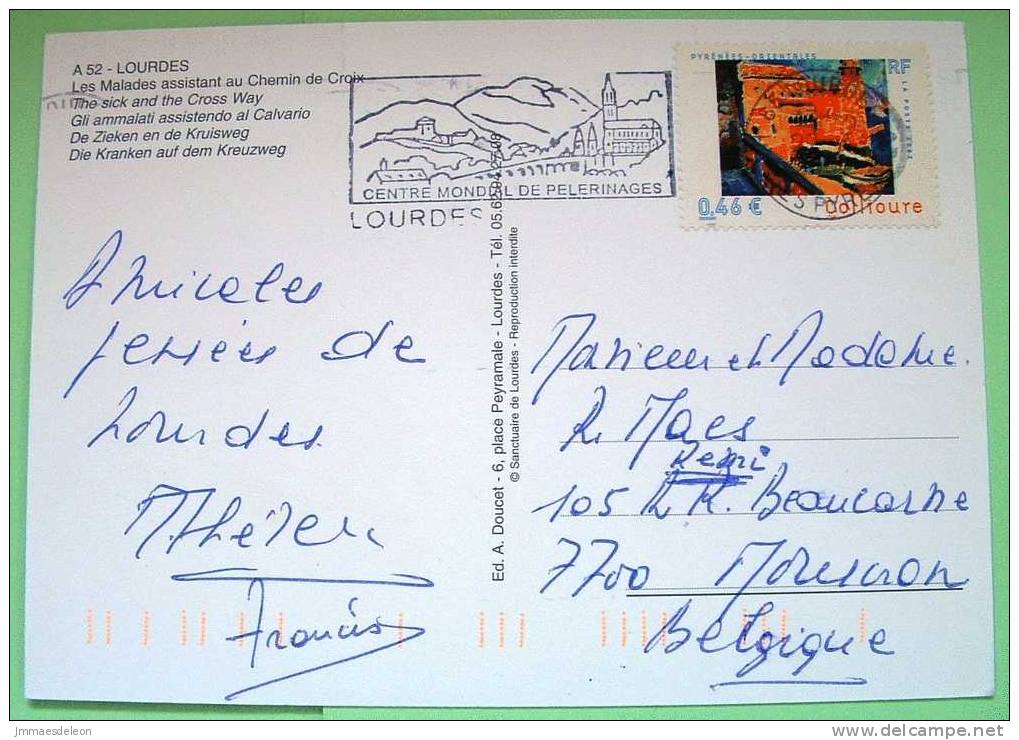 A 52 - LOURDES
Les Malades assistant au Chemin de Croix
The sick and the Cross Way
Gli ammalati assistendo al Calvario
De Zieken en de Kruisweg
Die Kranken auf dem Kreuzweg
CENTRE MONDIAL DE PELERINAGES
LOURDES
PYRÉNÉES-ORIENTALES
RF
LA POSTE 2002
0,46 €
Collioure
Amicales
pensées de
Lourdes
MThérèse
Francis
Ed. A. Doucet - 6, place Peyramale - Lourdes - Tél. 05.62.94.27.08
© Sanctuaire de Lourdes - Reproduction interdite
Monsieur et Madame
R. Maes
Remi
105 R. R. Beaucarne
7700 Mouscron
Belgique
Jmmaesdeleon
www.delcampe.net